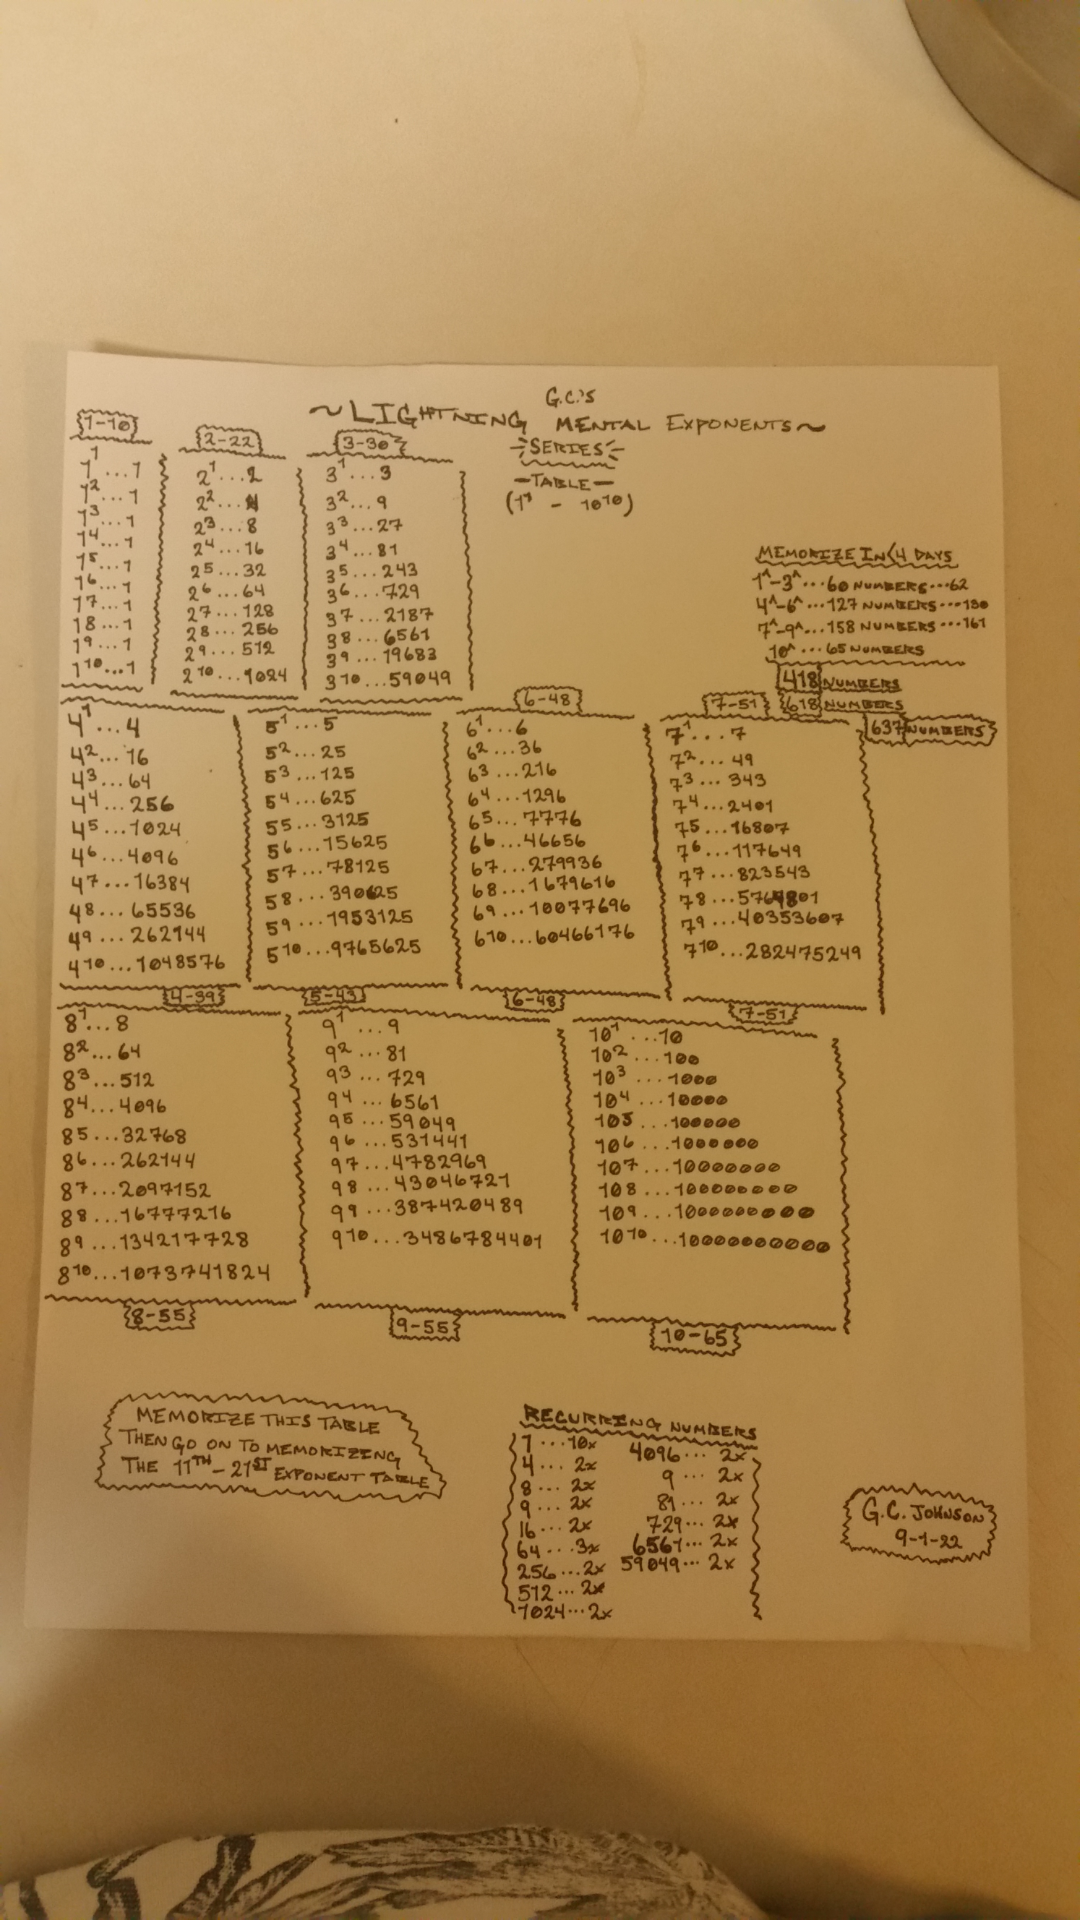 G.C.'S
~LIGHTNING MENTAL EXPONENTS~
SERIES
-TABLE-
(1^1 - 10^10)
1-10
1^1...1
1^2...1
1^3...1
1^4...1
1^5...1
1^6...1
1^7...1
1^8...1
1^9...1
1^10...1
2-22
2^1...2
2^2...4
2^3...8
2^4...16
2^5...32
2^6...64
2^7...128
2^8...256
2^9...512
2^10...1024
3-30
3^1...3
3^2...9
3^3...27
3^4...81
3^5...243
3^6...729
3^7...2187
3^8...6561
3^9...19683
3^10...59049
MEMORIZE IN 4 DAYS
1^-3^...60 NUMBERS...62
4^-6^...127 NUMBERS...130
7^-9^...158 NUMBERS...161
10^...65 NUMBERS
418 NUMBERS
618 NUMBERS
637 NUMBERS
4^1...4
4^2...16
4^3...64
4^4...256
4^5...1024
4^6...4096
4^7...16384
4^8...65536
4^9...262144
4^10...1048576
4-39
5^1...5
5^2...25
5^3...125
5^4...625
5^5...3125
5^6...15625
5^7...78125
5^8...390625
5^9...1953125
5^10...9765625
5-43
6-48
6^1...6
6^2...36
6^3...216
6^4...1296
6^5...7776
6^6...46656
6^7...279936
6^8...1679616
6^9...10077696
6^10...60466176
6-48
7-51
7^1...7
7^2...49
7^3...343
7^4...2401
7^5...16807
7^6...117649
7^7...823543
7^8...5764801
7^9...40353607
7^10...282475249
7-51
8^1...8
8^2...64
8^3...512
8^4...4096
8^5...32768
8^6...262144
8^7...2097152
8^8...16777216
8^9...134217728
8^10...1073741824
8-55
9^1...9
9^2...81
9^3...729
9^4...6561
9^5...59049
9^6...531441
9^7...4782969
9^8...43046721
9^9...387420489
9^10...3486784401
9-55
10^1...10
10^2...100
10^3...1000
10^4...10000
10^5...100000
10^6...1000000
10^7...10000000
10^8...100000000
10^9...1000000000
10^10...10000000000
10-65
MEMORIZE THIS TABLE
THEN GO ON TO MEMORIZING
THE 11TH-21ST EXPONENT TABLE
RECURRING NUMBERS
1...10x
4...2x
8...2x
9...2x
16...2x
64...3x
256...2x
512...2x
1024...2x
4096...2x
9...2x
81...2x
729...2x
6561...2x
59049...2x
G.C. JOHNSON
9-1-22